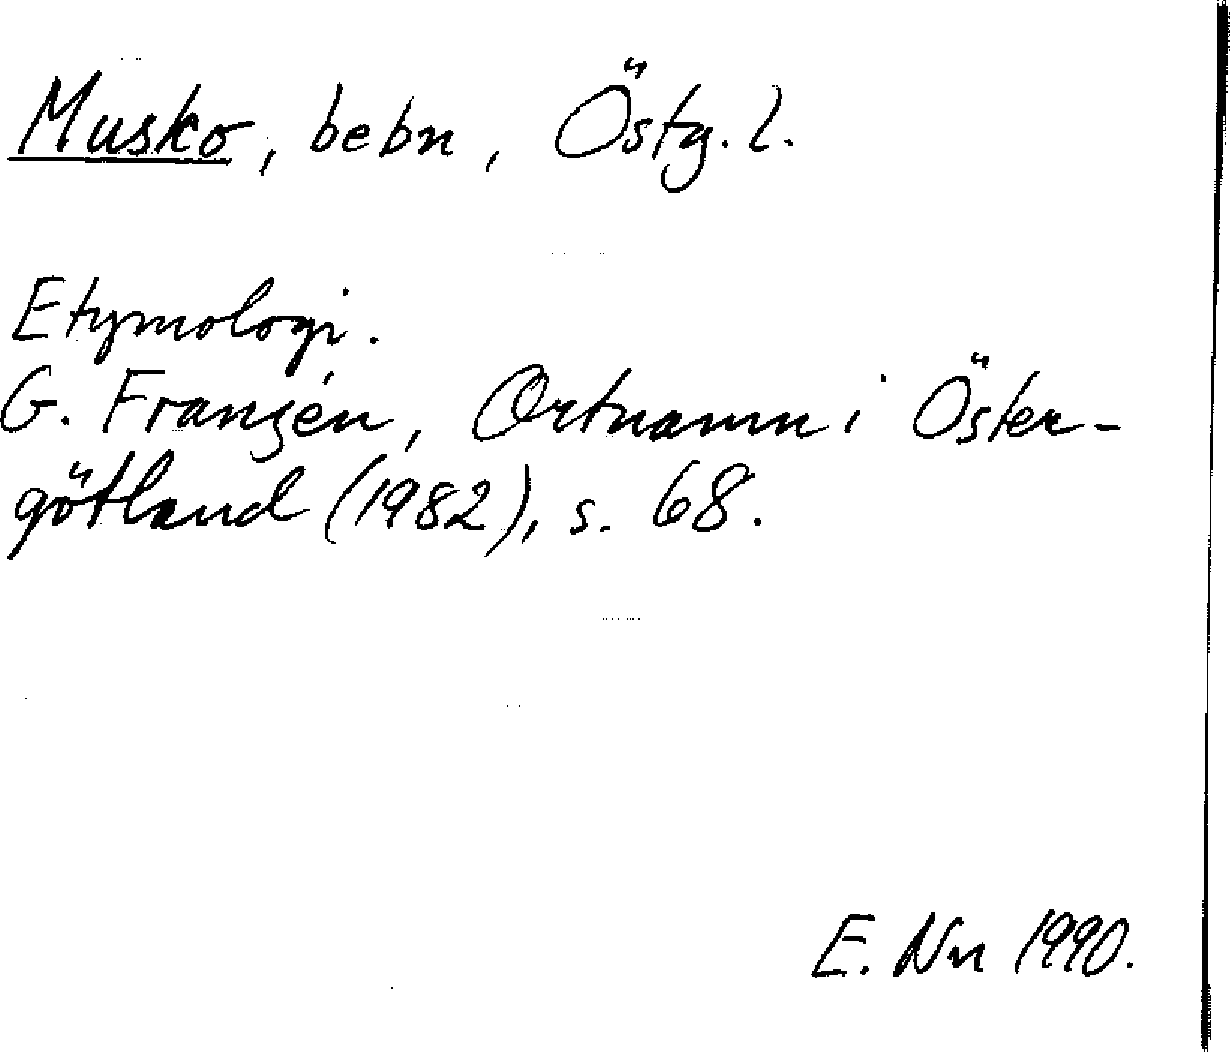 Musko, bebn, Östg. l.
Etymologi.
G. Franzén, Ortnamn i Öster-
götland (1982), s. 68.
E. Nn 1990.